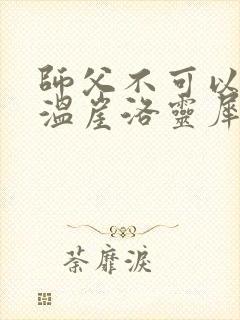 師父不可以
溫崖洛靈犀
荼靡淚